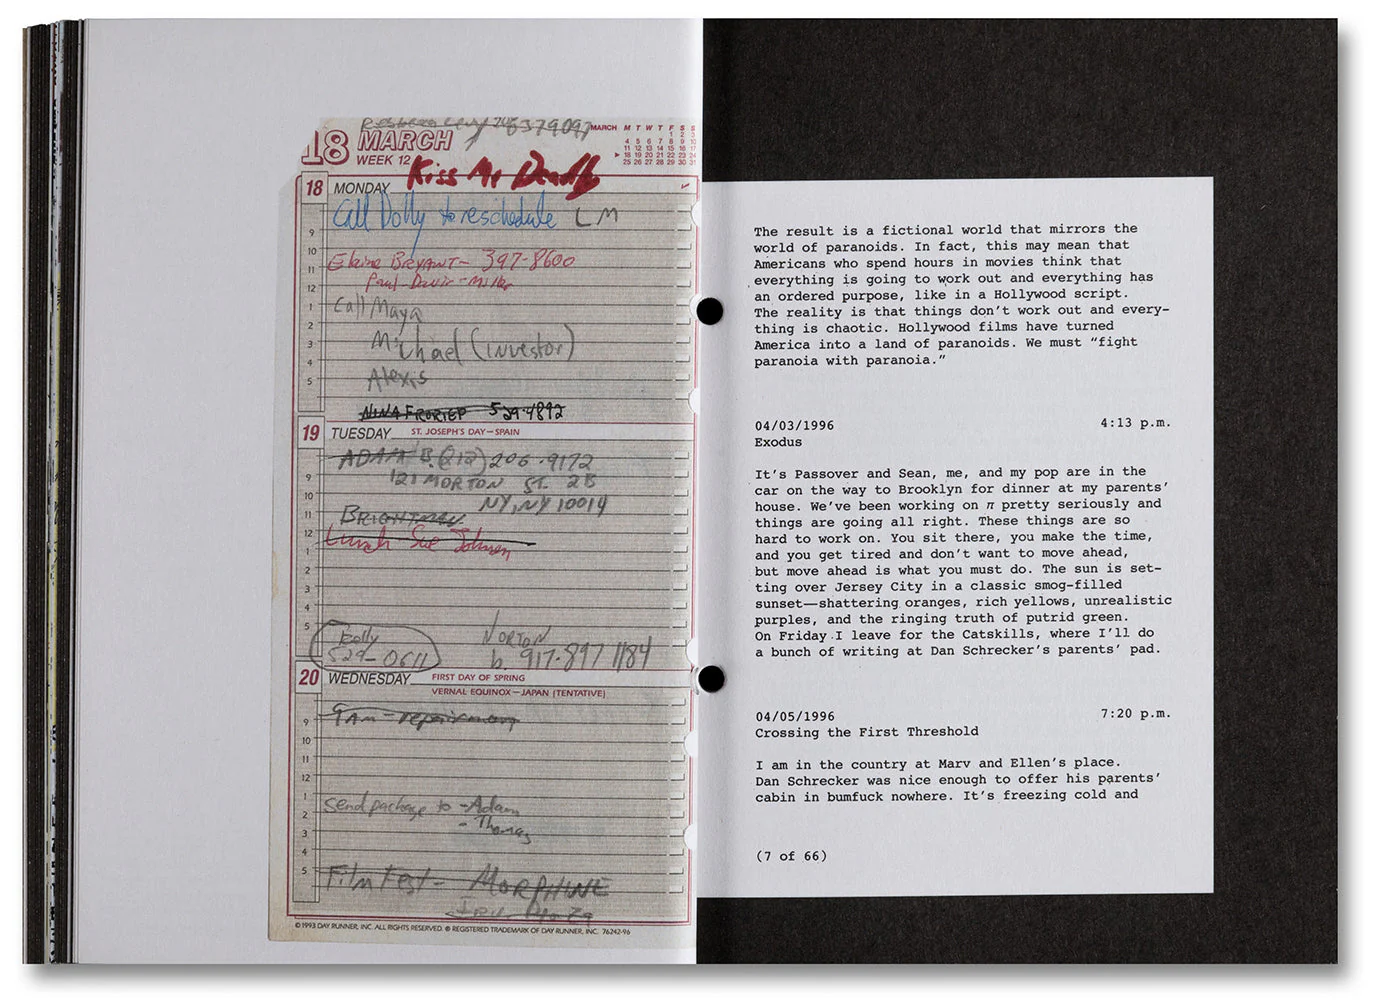 8379097
18 MARCH
WEEK 12
MARCH M T W T F S S
1 2 3
4 5 6 7 8 9 10
11 12 13 14 15 16 17
18 19 20 21 22 23 24
25 26 27 28 29 30 31
Kiss Me Deadly
18 MONDAY
Call Dolly to reschedule LM
9
10
Elaine Bryant- 397-8600
11
Paul-Davis-Miller
12
1 Call Maya
2
3 Michael (investor)
4
5 Alexis
NINA FRORIEP 529-4892
19 TUESDAY ST. JOSEPH'S DAY—SPAIN
ADAM B. (212) 206-9172
9 121 MORTON ST. 2B
10 NY, NY 10014
11 BRIGHTMAN
12 Lunch Sue Johnson
1
2
3
4
5 Dolly NORTON
529-0611 b. 917-897 1184
20 WEDNESDAY FIRST DAY OF SPRING
VERNAL EQUINOX—JAPAN (TENTATIVE)
9 9AM - repairman
10
11
12
1 Send package to - Adam
2 - Thomas
3
4
5 Film Fest - MORPHINE
© 1993 DAY RUNNER, INC. ALL RIGHTS RESERVED. ® REGISTERED TRADEMARK OF DAY RUNNER, INC. 76242-96
The result is a fictional world that mirrors the
world of paranoids. In fact, this may mean that
Americans who spend hours in movies think that
everything is going to work out and everything has
an ordered purpose, like in a Hollywood script.
The reality is that things don't work out and every-
thing is chaotic. Hollywood films have turned
America into a land of paranoids. We must “fight
paranoia with paranoia.”
04/03/1996 4:13 p.m.
Exodus
It's Passover and Sean, me, and my pop are in the
car on the way to Brooklyn for dinner at my parents'
house. We've been working on π pretty seriously and
things are going all right. These things are so
hard to work on. You sit there, you make the time,
and you get tired and don't want to move ahead,
but move ahead is what you must do. The sun is set-
ting over Jersey City in a classic smog-filled
sunset—shattering oranges, rich yellows, unrealistic
purples, and the ringing truth of putrid green.
On Friday I leave for the Catskills, where I'll do
a bunch of writing at Dan Schrecker's parents' pad.
04/05/1996 7:20 p.m.
Crossing the First Threshold
I am in the country at Marv and Ellen's place.
Dan Schrecker was nice enough to offer his parents'
cabin in bumfuck nowhere. It's freezing cold and
(7 of 66)